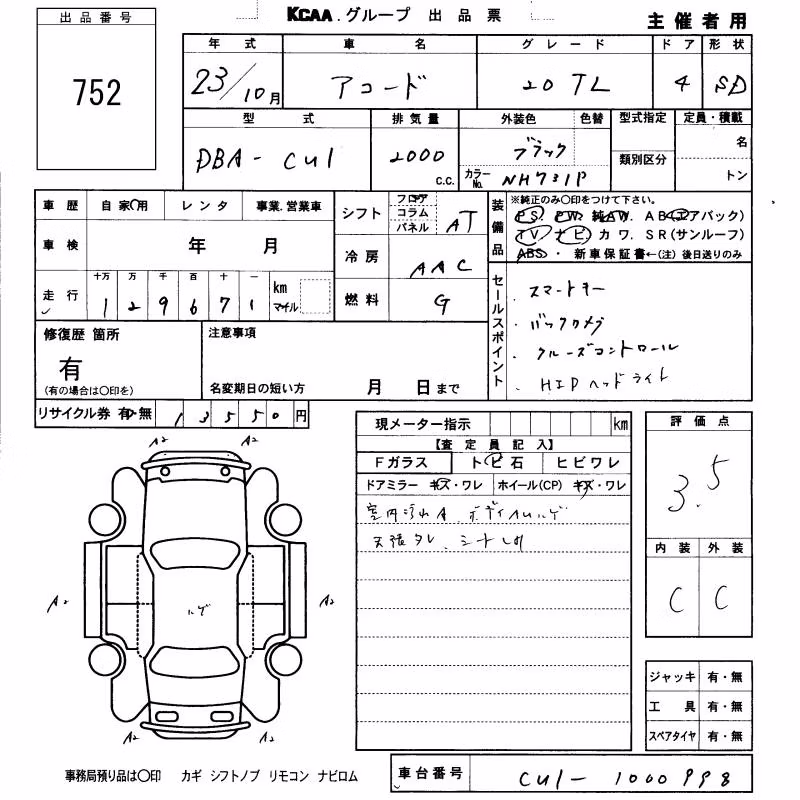 出品番号
KCAA.グループ 出品票
主催者用
752
年式 車名 グレード ドア 形状
23/10月 アコード 20TL 4 SD
型式 排気量 外装色 色替 型式指定 定員・積載
DBA-CU1 2000 C.C. ブラック 名
類別区分
カラーNo. NH731P トン
車歴 自家用 レンタ 事業.営業車
シフト フロア コラム パネル AT
装備品 ※純正のみ〇印をつけて下さい。
PS PW 純AW AB(エアバック)
TV ナビ カワ SR(サンルーフ)
ABS・新車保証書←(注)後日送りのみ
車検 年 月
冷房 AAC
走行 十万 万 千 百 十 一 km マイル
129671
燃料 G
セールスポイント
・スマートキー
・バックカメラ
・クルーズコントロール
・HIDヘッドライト
修復歴 箇所
有
(有の場合は〇印を)
注意事項
名変期日の短い方 月 日まで
リサイクル券 有・無 13550円
現メーター指示 km
【査定員記入】
Fガラス トビ石 ヒビワレ
ドアミラー キズ・ワレ ホイール(CP) キズ・ワレ
室内汚れA ボディ小ハゲ
天張タレ、シート
評価点
3.5
内装 外装
C C
A2 A2
A2 ハゲ A2
A2 A2
ジャッキ 有・無
工具 有・無
スペアタイヤ 有・無
事務局預り品は〇印 カギ シフトノブ リモコン ナビロム
車台番号 CU1-1000998